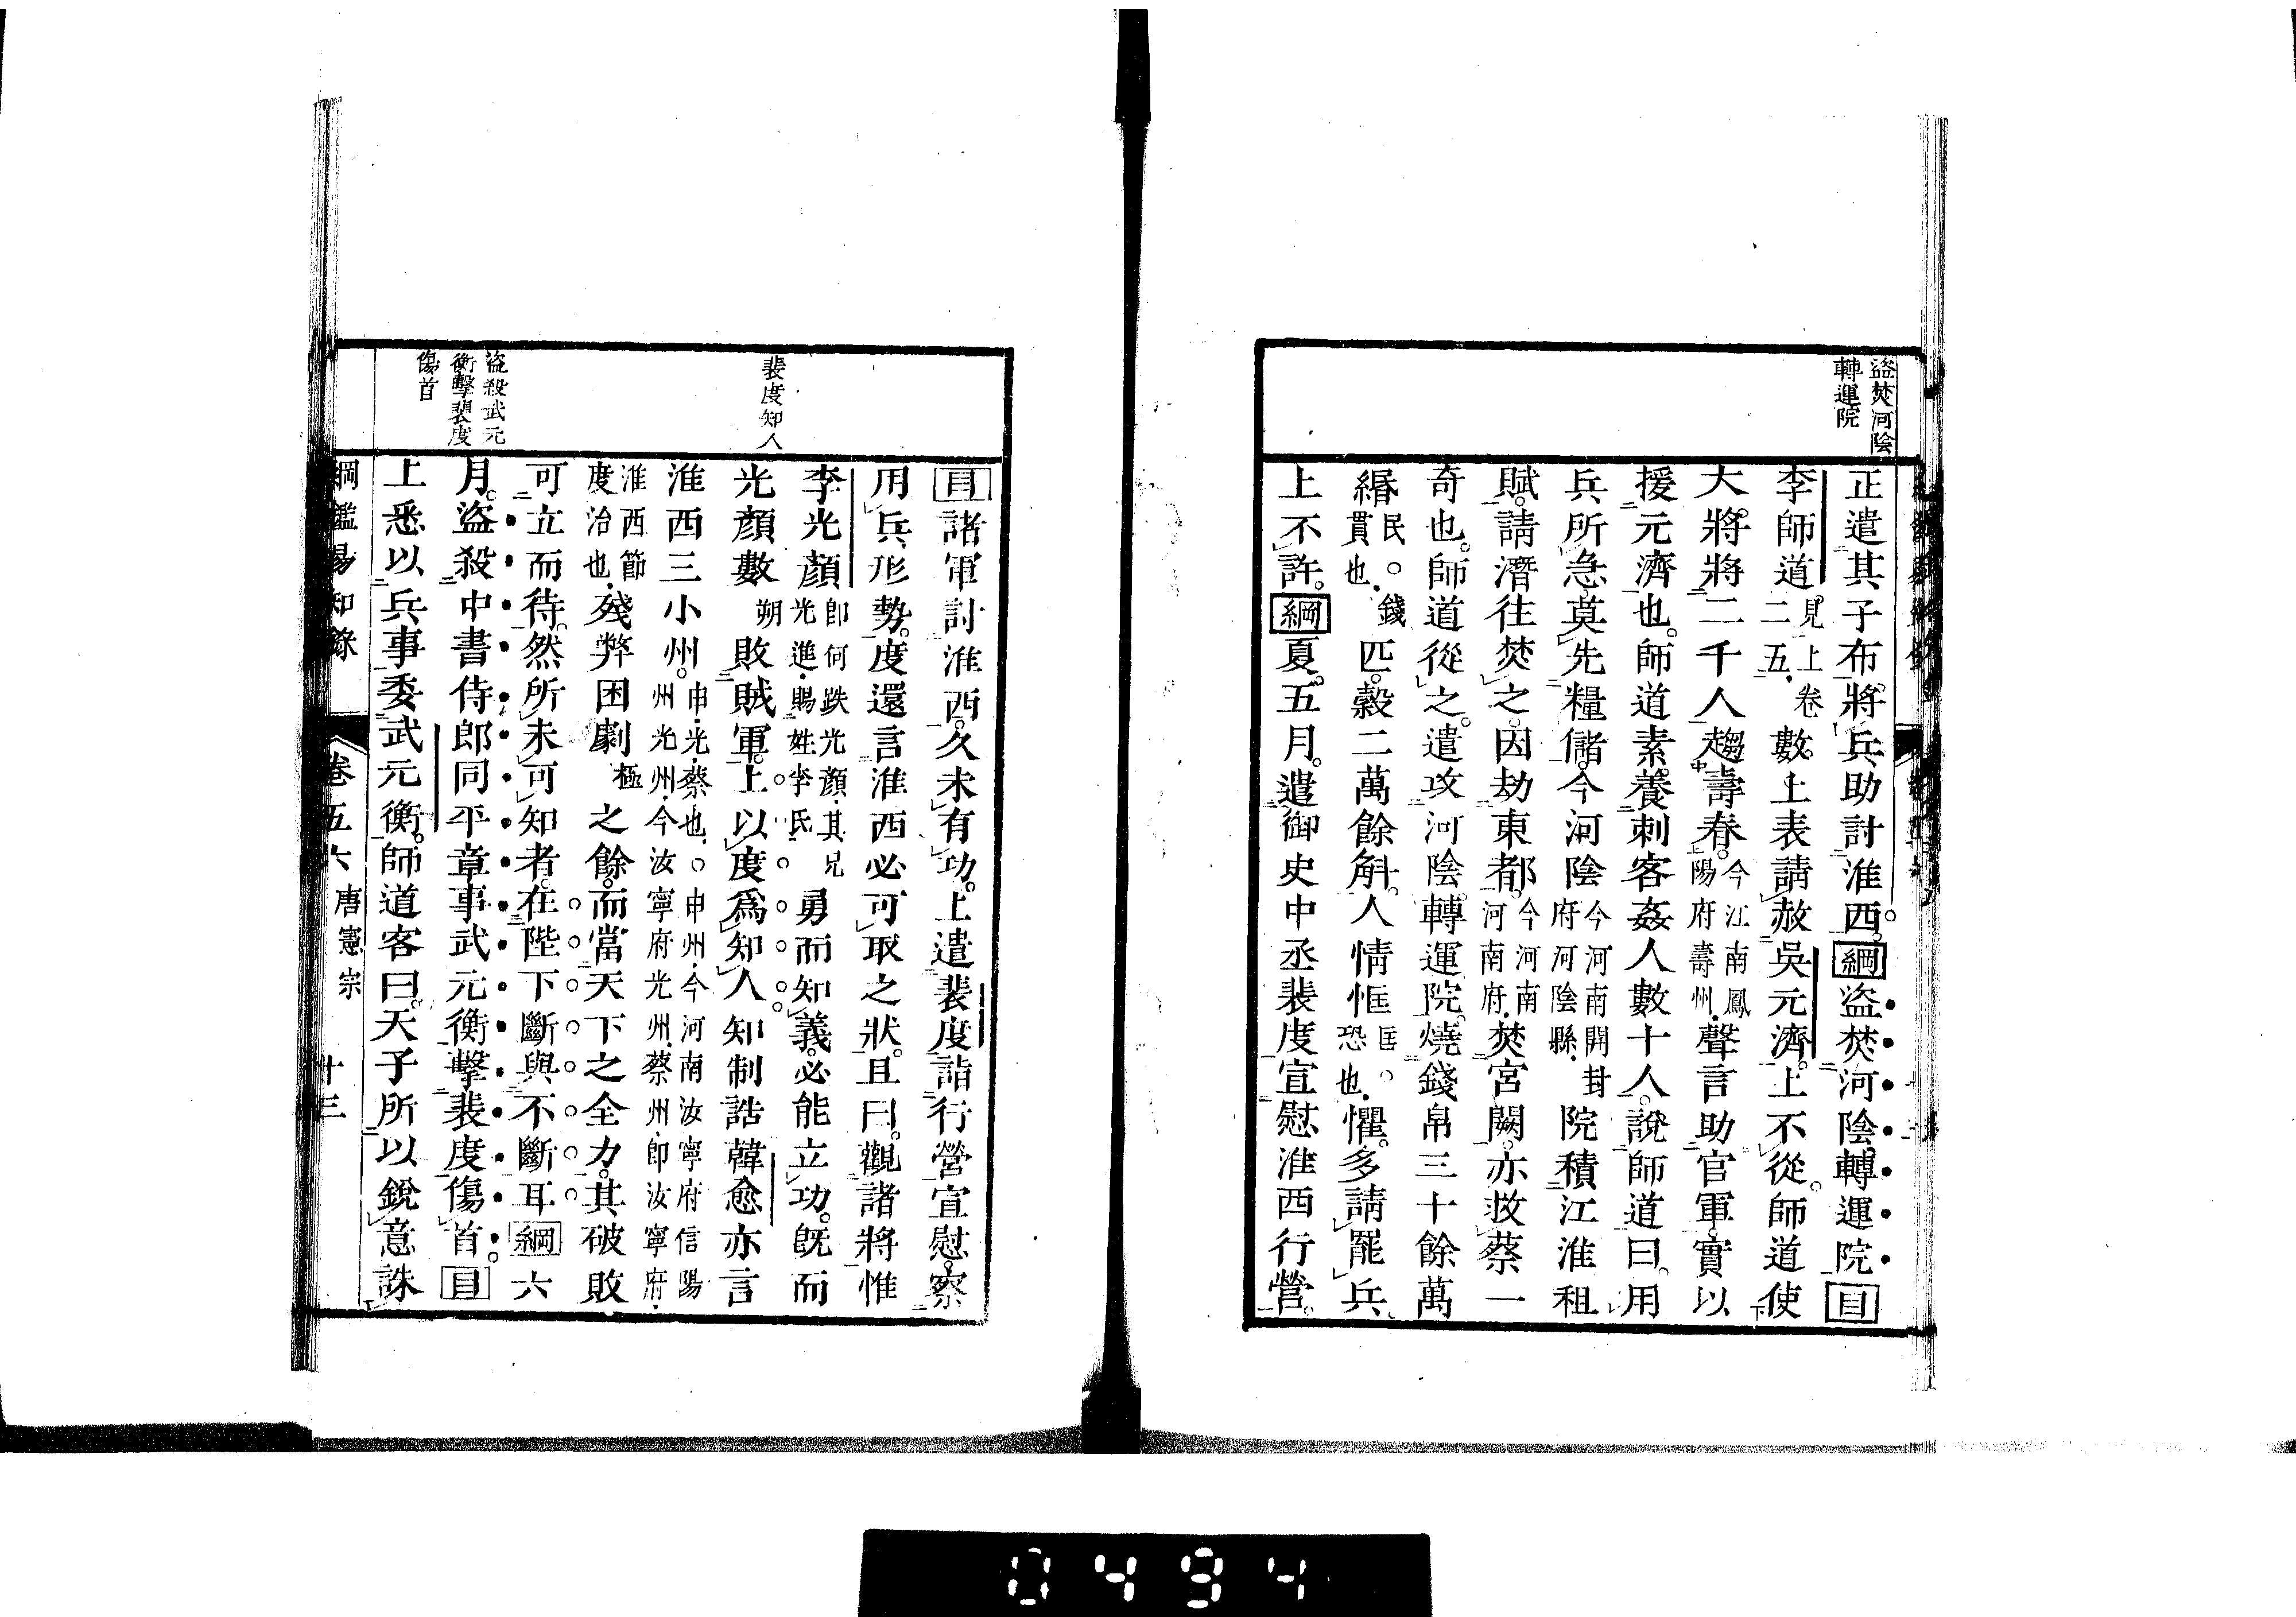 盜焚河陰
轉運院
正遣其子布。將兵助討淮西。綱盜焚河陰轉運院目
李師道。見上卷二五.數上表請赦吳元濟。上不從。師道使
大將將二千人趨壽春。今江南鳳陽府壽州.聲言助官軍。實以
援元濟也。師道素養刺客姦人數十人。說師道曰。用
兵所急。莫先糧儲。今河陰今河南開封府河陰縣.院積江淮租
賦。請潛往焚之。因劫東都。今河南河南府.焚宮闕。亦救蔡一
奇也。師道從之。遣攻河陰。轉運院。燒錢帛三十餘萬
緡民。○錢貫也.匹。穀二萬餘斛。人情恇匡。○恐也.懼。多請罷兵。
上不許。綱夏。五月。遣御史中丞裴度宣慰淮西行營。
裴度知人
盜殺武元
衡擊裴度
傷首
目諸軍討淮西。久未有功。上遣裴度詣行營宣慰。察
用兵形勢。度還言淮西必可取之狀。且曰。觀諸將惟
李光顏卽何跌光顏.其兄光進.賜姓李氏.勇而知義。必能立功。旣而
光顏數朔敗賊軍。上以度爲知人。知制誥韓愈亦言
淮西三小州。申.光.蔡也.○申州.今河南汝寧府信陽州光州.今汝寧府光州.蔡州.卽汝寧府.
淮西節度治也.殘弊困劇極之餘。而當天下之全力。其破敗
可立而待。然所未可知者。在陛下斷與不斷耳綱六
月。盜殺中書侍郎同平章事武元衡擊裴度傷首。目
上悉以兵事委武元衡。師道客曰。天子所以銳意誅
綱鑑易知錄 卷五六 唐憲宗 十三
0494